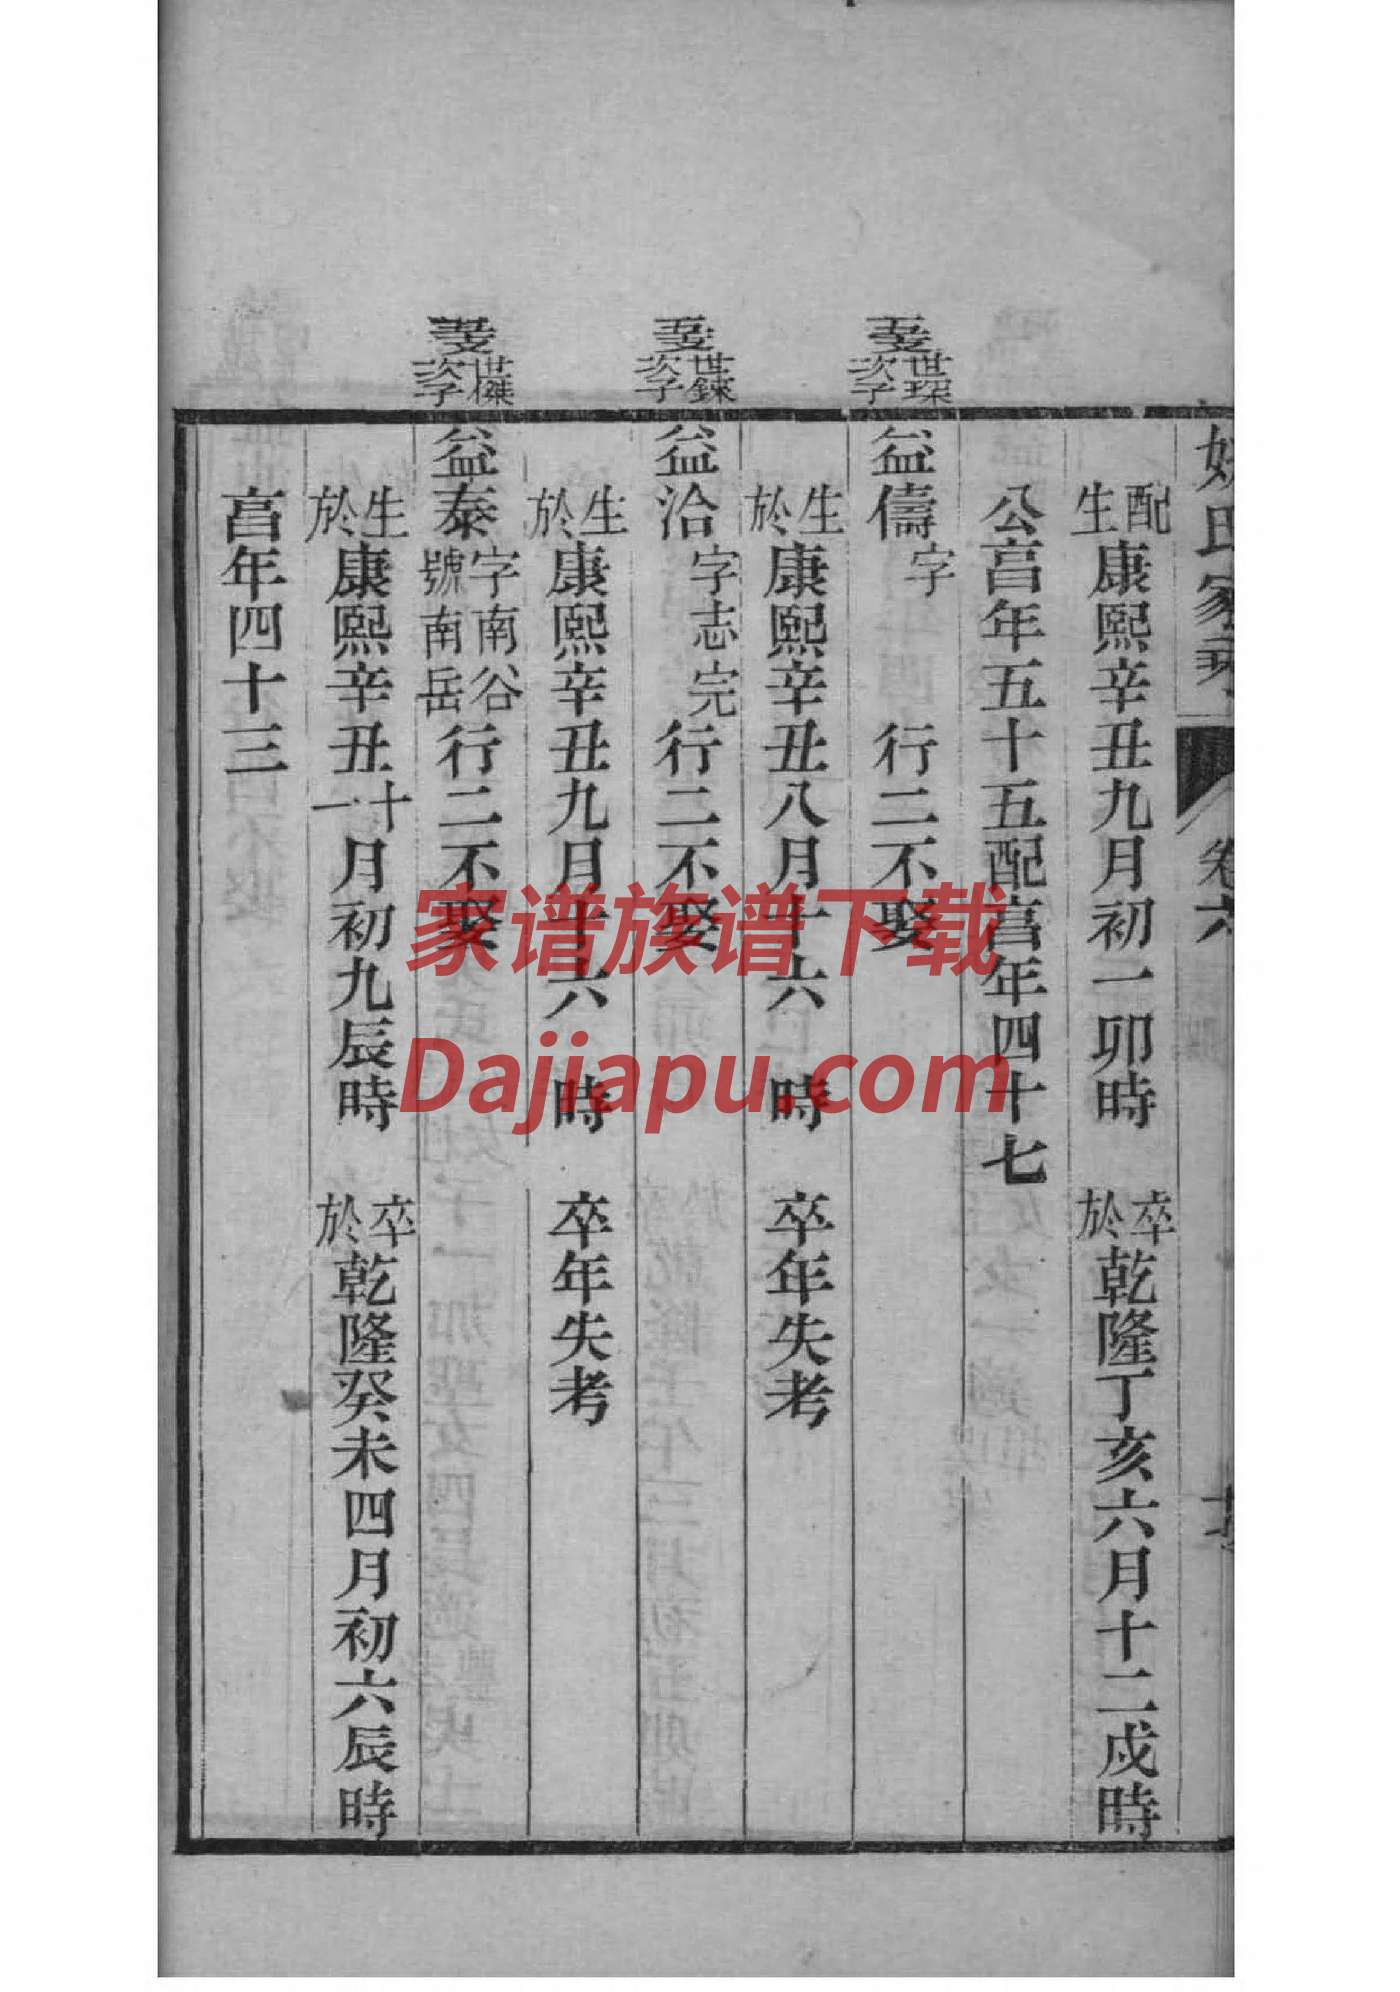 氏家乘
卷六
配生康熙辛丑九月初一卯時 卒於乾隆丁亥六月十二戌時
公亯年五十五配亯年四十七
世琛次子
益儔字 行二不娶
生於康熙辛丑八月十六 時 卒年失考
世鍊次子
益洽字志完行二不娶
生於康熙辛丑九月十六 時 卒年失考
世傑次子
益泰字南谷號南岳行二不娶
生於康熙辛丑十一月初九辰時 卒於乾隆癸未四月初六辰時
亯年四十三
家谱族谱下载
Dajiapu.com